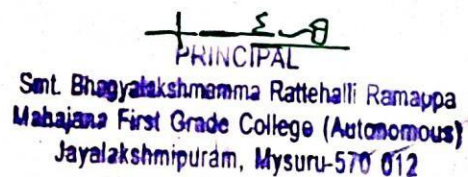 PRINCIPAL
Smt. Bhagyalakshmamma Rattehalli Ramappa
Mahajana First Grade College (Autonomous)
Jayalakshmipuram, Mysuru-570 012